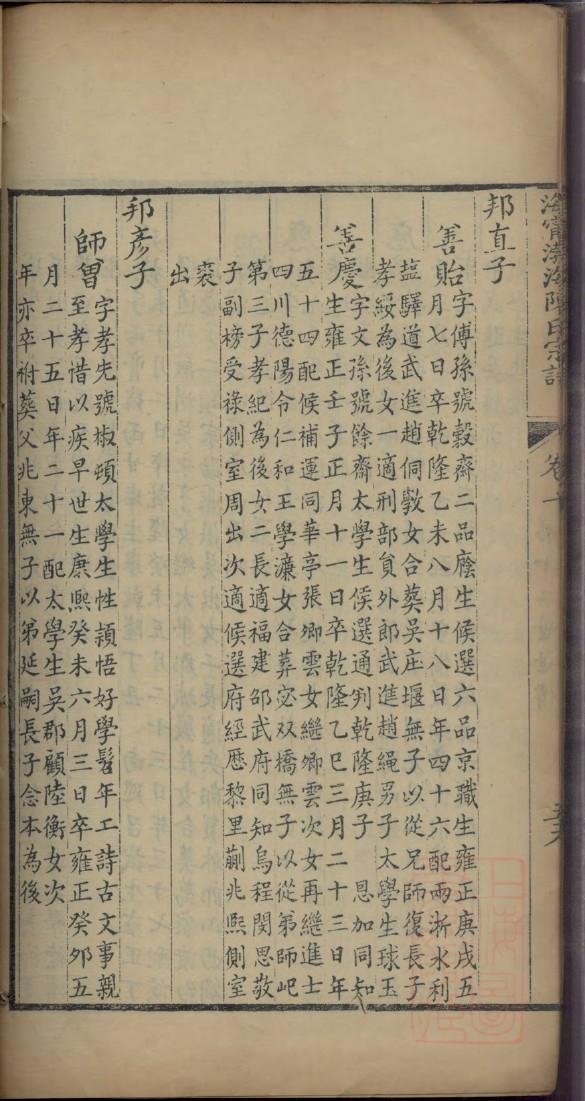 海甯渤海陳氏宗譜
卷十
邦直子
善貽
字傅孫號穀齋二品廕生候選六品京職生雍正庚戌五
月七日卒乾隆乙未八月十八日年四十六配兩浙水利
塩驛道武進趙侗斆女合葬吳庄堰無子以從兄師復長子
孝綏為後女一適刑部員外郎武進趙繩男子太學生球玉
善慶
字文孫號餘齋太學生候選通判乾隆庚子 恩加同知
生雍正壬子正月十一日卒乾隆乙巳三月二十三日年
五十四配候補運同華亭張卿雲女繼卿雲次女再繼進士
四川德陽令仁和王學濂女合葬宓双橋無子以從弟師屺
第三子孝紀為後女二長適福建邵武府同知烏程閔思敬
子副榜受祿側室周出次適候選府經歷黎里蒯兆熙側室
裘出
邦彥子
師曾
字孝先號椒頌太學生性穎悟好學髫年工詩古文事親
至孝惜以疾早世生康熙癸未六月三日卒雍正癸夘五
月二十五日年二十一配太學生吳郡顧陸衡女次
年亦卒祔葬父兆東無子以弟延嗣長子念本為後